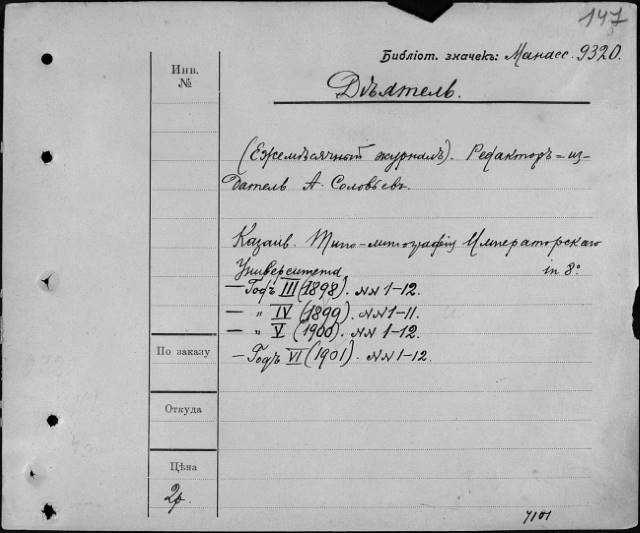 147
5
Библіот. значекъ: Манасс. 9320.
Инв.
№
Дѣятель.
(Ежемѣсячный журналъ). Редакторъ-из-
датель А. Соловьевъ.
Казань. Типо-литографія Императорскаго
Университета in 8º
— Годъ III (1898). NN 1-12.
— „ IV (1899). NN 1-11.
— „ V (1900). NN 1-12.
— Годъ VI (1901). NN 1-12.
По заказу
Откуда
Цѣна
2р.
7101